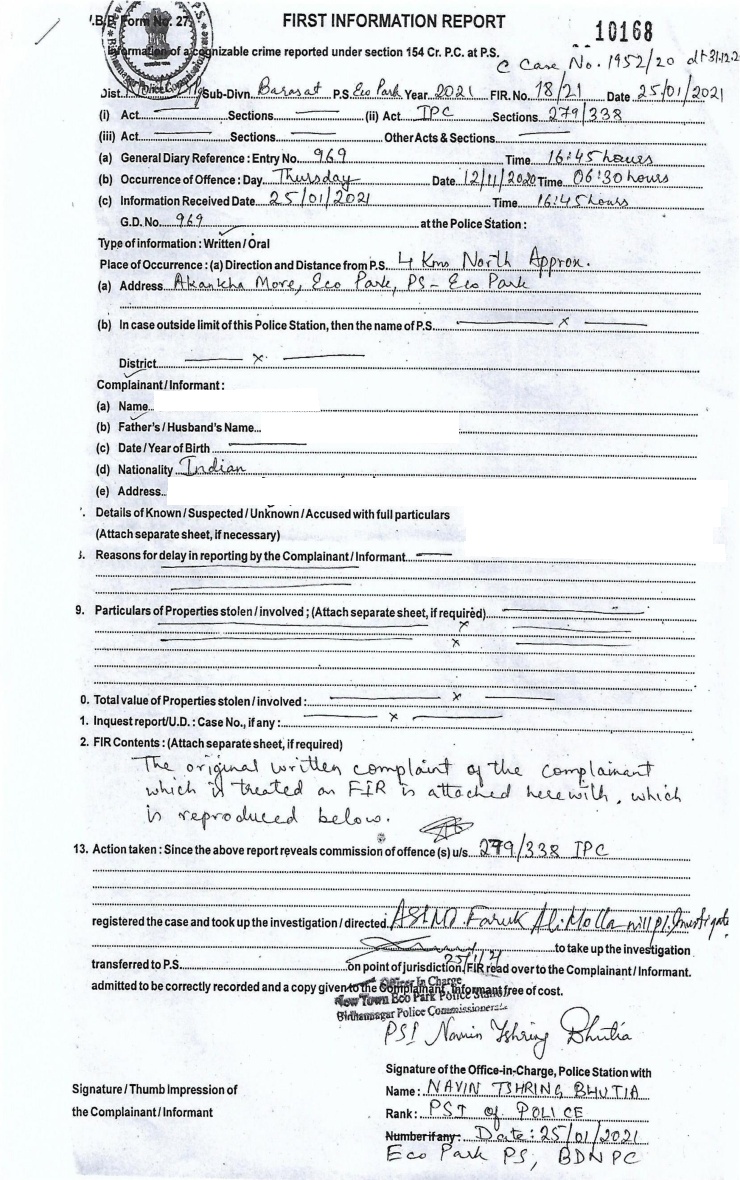 W.B.P. Form No. 27
FIRST INFORMATION REPORT
10168
Information of a cognizable crime reported under section 154 Cr. P.C. at P.S.
C Case No. 1952/20 dt-31.12.2
Dist. Sub-Divn. Barasat P.S. Eco Park Year 2021 FIR. No. 18/21 Date 25/01/2021
(i) Act Sections (ii) Act IPC Sections 279/338
(iii) Act Sections Other Acts & Sections
(a) General Diary Reference : Entry No. 969 Time 16:45 hours
(b) Occurrence of Offence : Day Thursday Date 12/11/2020 Time 06:30 hours
(c) Information Received Date 25/01/2021 Time 16:45 hours
G.D. No. 969 at the Police Station :
Type of information : Written / Oral
Place of Occurrence : (a) Direction and Distance from P.S. 4 Kms North Approx.
(a) Address Akankha More, Eco Park, PS - Eco Park
(b) In case outside limit of this Police Station, then the name of P.S. x
District x
Complainant / Informant :
(a) Name
(b) Father's / Husband's Name
(c) Date / Year of Birth
(d) Nationality Indian
(e) Address
Details of Known / Suspected / Unknown / Accused with full particulars
(Attach separate sheet, if necessary)
Reasons for delay in reporting by the Complainant / Informant
9. Particulars of Properties stolen / involved ; (Attach separate sheet, if required)
x
x
0. Total value of Properties stolen / involved : x
1. Inquest report / U.D. : Case No., if any : x
2. FIR Contents : (Attach separate sheet, if required)
The original written complaint of the complainant
which is treated as FIR is attached herewith, which
is reproduced below.
13. Action taken : Since the above report reveals commission of offence (s) u/s. 279/338 IPC
registered the case and took up the investigation / directed ASI MD. Faruk Ali Molla will pl. Investigate
to take up the investigation
25/1/21
transferred to P.S. on point of jurisdiction. FIR read over to the Complainant / Informant.
admitted to be correctly recorded and a copy given to the Complainant, Informant free of cost.
Officer In Charge
New Town Eco Park Police Station
Bidhannagar Police Commissionerate
PSI Navin Tshring Bhutia
Signature of the Office-in-Charge, Police Station with
Signature / Thumb Impression of
the Complainant / Informant
Name : NAVIN TSHRING BHUTIA
Rank : PSI of POLICE
Number if any : Date : 25/01/2021
Eco Park PS, BDNPC